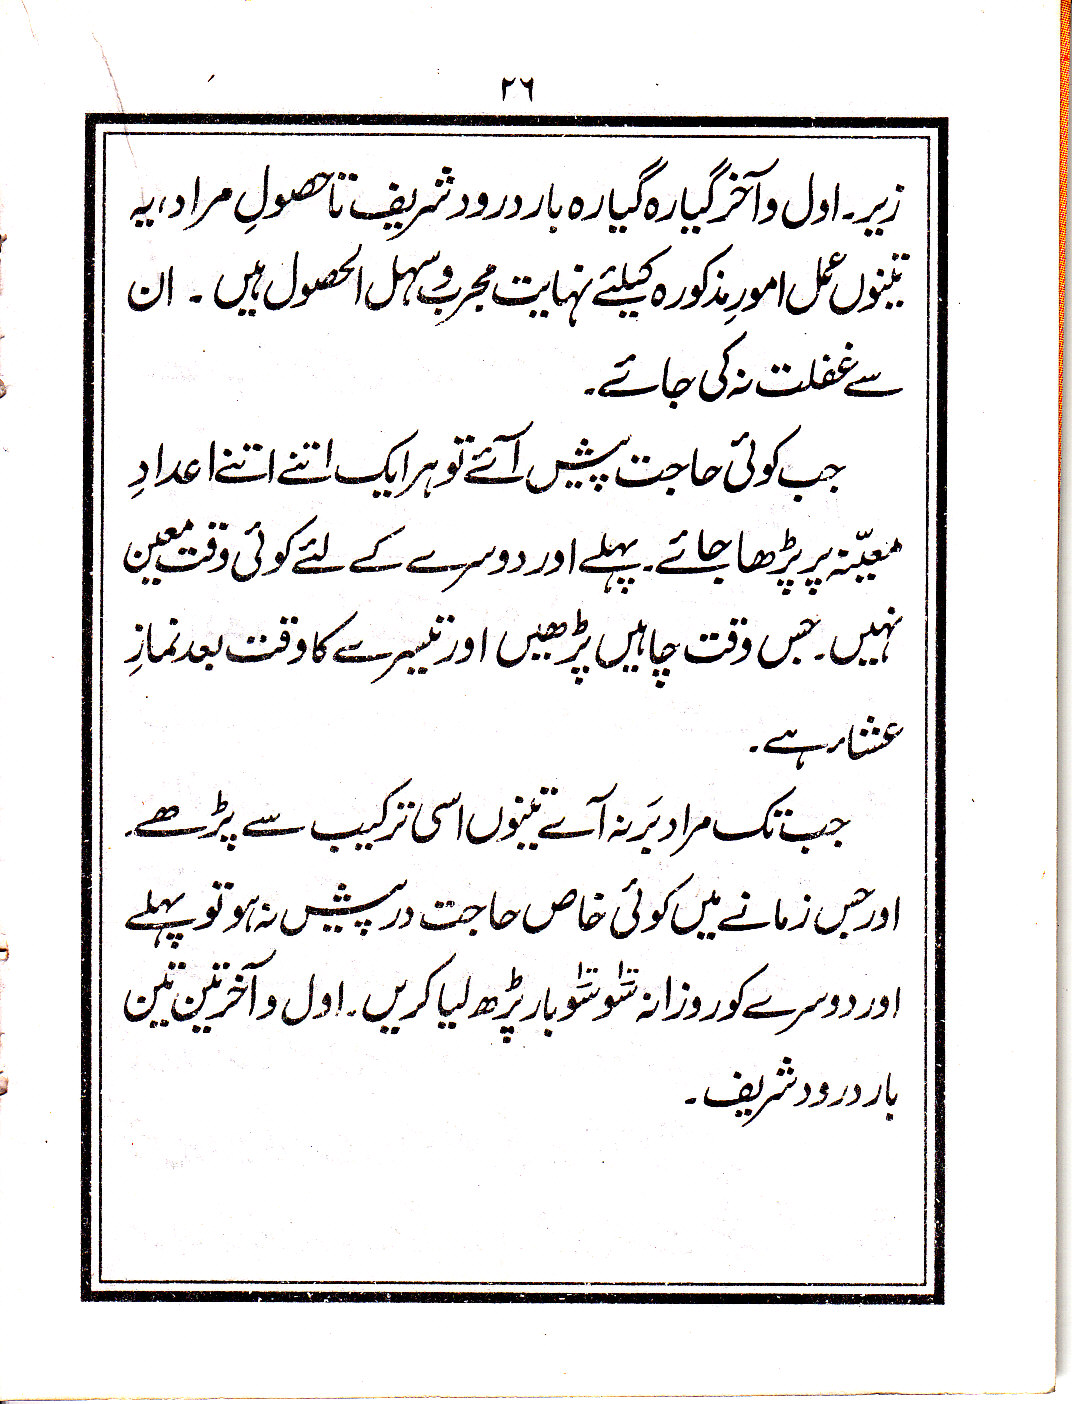 ۲۶
زیر۔ اول و آخر گیارہ گیارہ بار درود شریف تا حصولِ مراد، یہ
تینوں عمل امورِ مذکورہ کیلئے نہایت مجرب و سہل الحصول ہیں ۔ ان
سے غفلت نہ کی جائے۔
جب کوئی حاجت پیش آئے تو ہر ایک اتنے اتنے اعدادِ
معیّنہ پر پڑھا جائے۔ پہلے اور دوسرے کے لئے کوئی وقت معین
نہیں۔ جس وقت چاہیں پڑھیں اور تیسرے کا وقت بعد نمازِ
عشاء ہے۔
جب تک مراد بَر نہ آئے تینوں اسی ترکیب سے پڑھے۔
اور جس زمانے میں کوئی خاص حاجت درپیش نہ ہو تو پہلے
اور دوسرے کو روزانہ سَو سَو بار پڑھ لیا کریں۔ اول و آخر تین تین
بار درود شریف ۔